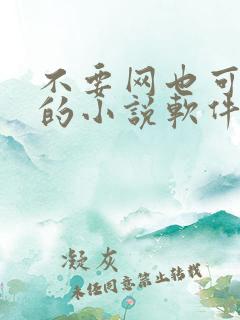 不要网也可
的小說軟件
凝灰
未经同意禁止转载